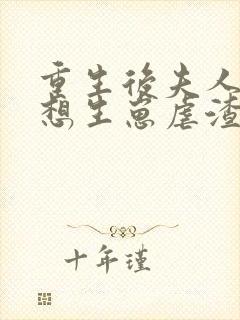 重生後夫人
想生崽虐渣
十年瑾